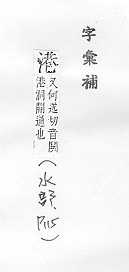 字彙補
港 又何送切音閧
港洞開通也
(水部, P115)